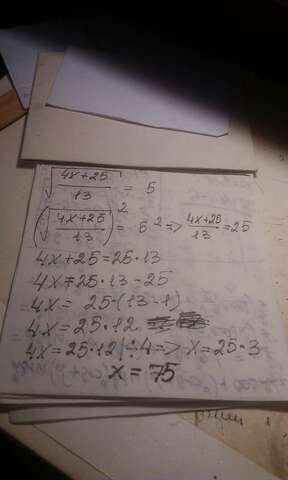 √((4x+25)/13) = 5
(√((4x+25)/13))² = 5² => (4x+25)/13 = 25
4x+25=25·13
4x=25·13-25
4x= 25·(13-1)
4x=25·12
4x=25·12 |÷4=> x=25·3
x=75